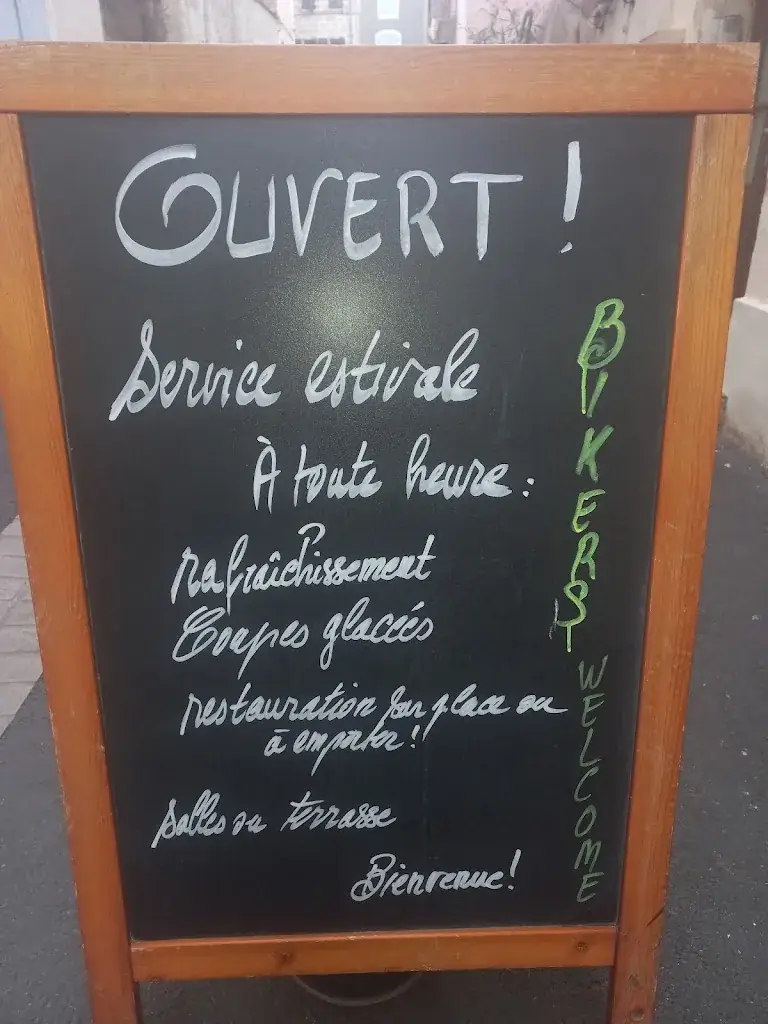 OUVERT !
Service estivale
À toute heure :
rafraîchissement
Coupes glacées
restauration sur place ou
à emporter !
salles ou terrasse
Bienvenue !
BIKERS WELCOME